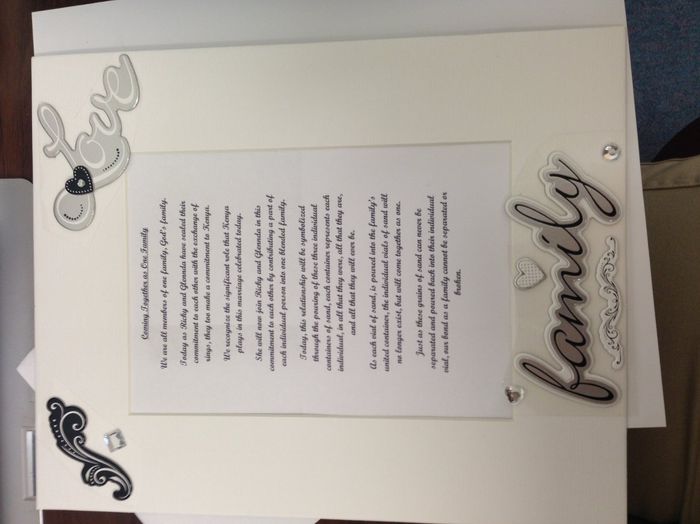 Love
Coming Together as One Family
We are all members of one family, God's family.
Today as Ricky and Glenda have sealed their
commitment to each other with the exchange of
rings, they too make a commitment to Kenya.
We recognize the significant role that Kenya
plays in this marriage celebrated today.
She will now join Ricky and Glenda in this
commitment to each other by contributing a part of
each individual person into one blended family.
Today, this relationship will be symbolized
through the pouring of these three individual
containers of sand, each container represents each
individual, in all that they were, all that they are,
and all that they will ever be.
As each vial of sand, is poured into the family's
united container, the individual vials of sand will
no longer exist, but will come together as one.
Just as these grains of sand can never be
separated and poured back into their individual
vial, our bond as a family cannot be separated or
broken.
family